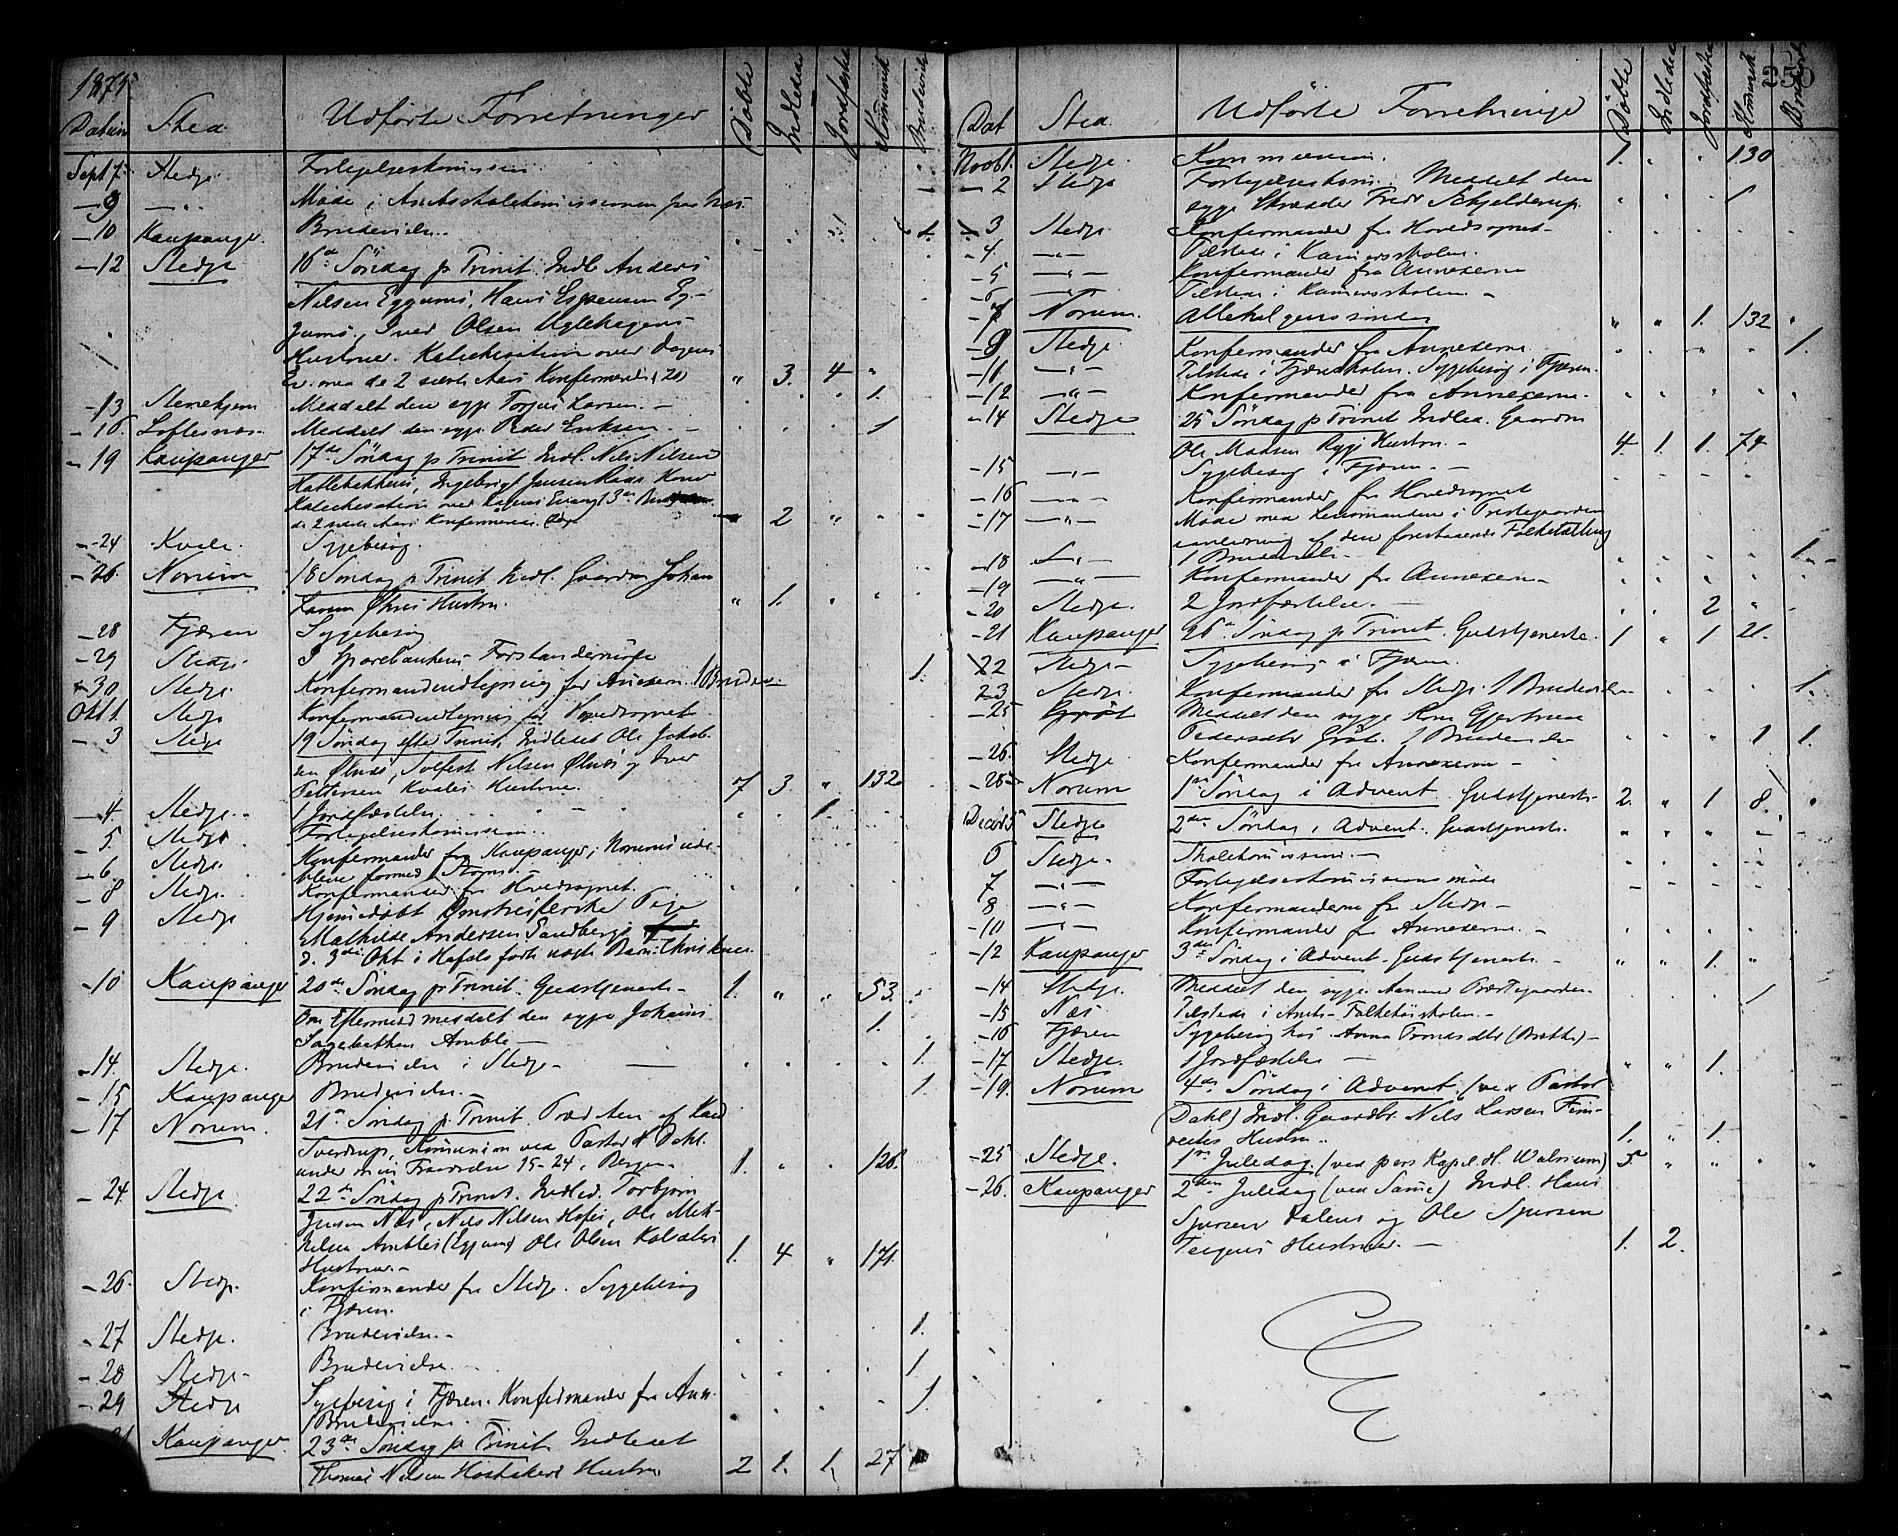 1875
Datum Sted Udførte Forretninger Døbte Indledte Jordfæstede Kommunik Brudevielse
Sept 7 Stedje Forligelseskomission
- 9 - " - Møde i Amtsskolekomissionen paa Næs
- 10 Kaupanger Brudevielse 1.
- 12 Stedje 16de Søndag p Trinit. Indl. Anders
Nilsen Eggums, Hans Espensen Eg-
gums, Iver Olsen Uglehagens
Hustruer. Katechisation over Dagens
Ev. med de 2 sidste Aars Konfirmerede (20) " 3. 4 "
- 13 Stenehjem Meddelt den syge Torgus Larsen. - 1.
- 16 Loftesnæs Meddelt den syge Peder Eriksen. - 1
- 19 Kaupanger 17de Søndag p Trinit. Indl. Nils Nilsen
Hattebakkens, Ingebrigt Jensen Koner
Katechisation over Dagens Evang.
de 2 sidste Aars Konfirmerede. 2 "
- 24 Kvale Sygebesøg.
- 26. Norum 18 Søndag p Trinit. Indl. Gaardm. Johan
Larsen Ølnes Hustru. " 1.
- 28 Fjæren Sygebesøg
- 29 Stedje I Sparebankens Forstandermøde
- 30 Stedje Konfirmandudlegning for Annexerne. 1 Brudev. 1.
Okt 1. Stedje Konfirmandudlegning for Hovedsognet
- 3 Stedje 19 Søndag efter Trinit. Indledet Ole Jakob-
sen Ølnes, Solfest Nilsen Ølnes og Iver
Pettersen Kvales Hustruer. 7 3 " 132
- 4 Stedje 1 Jordfæstelse. 1.
- 5 Stedje Forligelseskomission.
- 6. Stedje Konfirmander fra Kaupanger; Norums ude-
bleve formed. Storm. -
- 8 Stedje Konfirmander fra Hovedsognet.
- 9 Stedje Hjemmedøbt Pige
Mathilde Andersen Sandbergs
d. 3die Okt i Hafslo fødte uægte Barn: Christian
- 10 Kaupanger 20de Søndag p Trinit. Gudstjeneste - 1. " " 53.
Om Eftermidd meddelt den syge Johannes 1.
Sagebakken Amble -
- 14. Stedje. Brudevielse i Stedje - 1.
- 15 Kaupanger Brudevielse. - 1.
- 17 Norum. 21de Søndag p. Trinit. Præd. ten af Kand
Sverdrup, Komunion ved Pastor Dahl.
under min Fraværelse 15-24 i Bergen. 1. 126.
- 24. Stedje. 22de Søndag p Trinit. Indled. Torbjørn
Jensen Næs, Nils Nilsen Hofses, Ole
Nilsen Ambles (Eggum) Ole Olsen 1. 4 " 171.
Hustruer. -
- 26. Stedje. Konfirmander fra Stedje. Sygebesøg
i Fjæren.
- 27 Stedje. Brudevielse. - 1.
- 28 Stedje. Brudevielse. 1
- 29 Stedje Sygebesøg i Fjæren. Konfirmander fra Ann.
1 Brudevielse. 1
Kaupanger. 23de Søndag p Trinit. Indledet
Thomas Nilsen Hustru 2 1. 1. 27
Dat Sted Udførte Forretninge Døbte Indledede Jordfæstede Kommunik Brudevi 250
Novb 1. Stedje. Kommunion. 1. " " 130
- 2 Stedje Forligelseskom. Meddelt den
syge Skrædder Fredr Schjelderup. 1
- 3 Stedje Konfirmander fra Hovedsognet -
- 4 - " - Tilstede i Kamersskolen.
- 5 - " - Konfirmander fra Annexerne
- 6 - " - Tilstede i Kamersskolen. -
- 7 Norum. Allehelgenssøndag " " 1. 132 "
- 9 Stedje. Konfirmander fra Annexerne. 1.
- 11 - " - Tilstede i Fjærenskolen. Sygebesøg i Fjæren.
- 12 - " - Konfirmander fra Annexerne.
- 14 Stedje 25 Søndag p Trinit. Indled. Gaardm
Ole Madsen Rygs Hustru. - 4 1. 1. 74
- 15 - " - Sygebesøg i Fjæren. -
- 16 - " - Konfirmander fra Hovedsognet
- 17 - " - Møde med Lensmanden i Prestegaarden
i anledning af den forestaaende Folketælling
- 18 - " - 1 Brudevielse - 1.
- 19 - " - Konfirmander fra Annexerne -
- 20 Stedje. 2 Jordfæstelse. - 2
- 21 Kaupanger 26de Søndag p Trinit. Gudstjeneste. 1 " 1 21.
- 22 Stedje - Sygebesøg i Fjæren.
23 Stedje. Konfirmander fra Stedje. 1 Brudevielse 1.
- 25 Grøt Meddelt den syge Kone
Pedersdtr Grøt. 1 Brudevielse 1 1.
- 26. Stedje Konfirmander fra Annexerne -
- 28de Norum 1ste Søndag i Advent. Gudstjeneste. 2. " 1 8.
Decbr 5 Stedje 2den Søndag i Advent. Gudstjeneste.
6 Stedje. Skolekomission. -
7 - " - Forligelseskomissionsmøde
8 - " - Konfirmanderne fra Stedje -
- 10 - " - Konfirmander fra Annexerne. -
- 12 Kaupanger 3die Søndag i Advent. Gudstjeneste. - " " 1. "
- 14 Stedje. Meddelt den syge Præstegaarden. 1
- 15 Næs Tilstede i Amts-Folkehøiskolen. -
- 16 Fjæren Sygebesøg hos Anna Trondsdtr (Bratte) -
- 17 Stedje. 1 Jordfæstelse - " " 1.
- 19. Norum 4de Søndag i Advent. (ved Pastor
Dahl) Indl. Gaardbr. Nils Larsen Fim-
reites Hustru. 1. " 1.
- 25 Stedje. 1ste Juledag. (ved pers Kapel. H. Walnum) 5 " " " "
- 26. Kaupanger 2den Juledag (ved Samme) Indl. Hans
Sjursen Dalens og Ole Sjursen
Teigens Hustruer. - 1. 2.